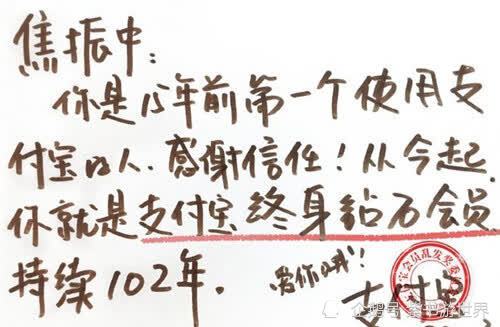 焦振中:
你是15年前第一个使用支
付宝的人.感谢信任!从今起,
你就是支付宝终身钻石会员.
持续102年.
爱你哦!
支付宝
企鹅号